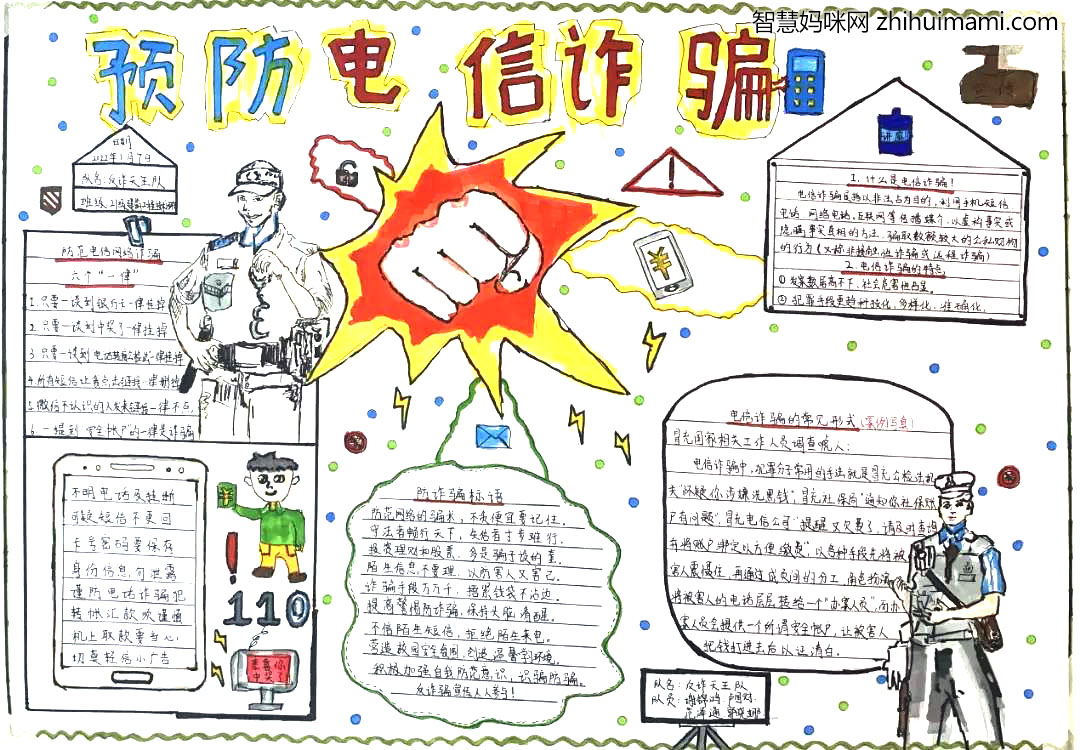 智慧妈咪网 zhihuimami.com
预防电信诈骗
日期
2022年1月7日
队名:反诈天王队
班级:
防范电信网络诈骗
六个"一律"
1.只要一谈到银行卡一律挂掉
2.只要一谈到中奖了一律挂掉
3.只要一谈到
一律挂掉
4.所有短信让我点击链接一律删掉
5.微信不认识的人发来链接一律不点
6.一提到"安全帐户"的一律是诈骗
不明电话及挂断
可疑短信不要回
卡号密码要保存
身份信息勿泄露
谨防电话诈骗犯
转帐汇款须谨慎
机上取款要当心
切莫轻信小广告
110
恭喜你
中奖了
防诈骗标语
防范网络的骗术,不贪便宜要记住。
守法者畅行天下,失信者寸步难行。
投资理财和股票,多是骗子设的套。
陌生信息不要理,以防害人又害己。
诈骗手段万万千,捂紧钱袋不沾边。
提高警惕防诈骗,保持头脑清醒。
不信陌生短信,拒绝陌生来电。
营造校园安全氛围,创造温馨学习环境。
积极加强自我防范意识,识骗防骗。
反诈骗宣传人人参与!
1.什么是电信诈骗!
电信诈骗是指以非法占为目的,利用手机短信
电话、网络电话,互联网等传播媒介,以虚构事实或
隐瞒事实真相的方法,骗取数额较大的公私财物
的行为(又称非接触性诈骗或远程诈骗)
2.电信诈骗的特点
①发案数居高不下、社会危害性凸显。
②犯罪手段更趋科技化、多样化、准确化。
电信诈骗的常见形式(案例写真)
冒充国家相关工作人员调查唬人:
电信诈骗中,犯罪分子常用的手法就是冒充公检法机
关"怀疑你涉嫌洗黑钱"、冒充社保局"通知你社保账
户有问题"、冒充电信公司"提醒又欠费了,请及时查询
有将账户绑定以方便缴费"以各种手段先将被
害人震慑住,再通过成员间的分工、角色扮演
将被害人的电话层层转给一个"办案人员",由办
害人员会提供一个所谓安全帐户,让被害人
把钱打进去后以证清白。
队名:反诈天王队
队员: